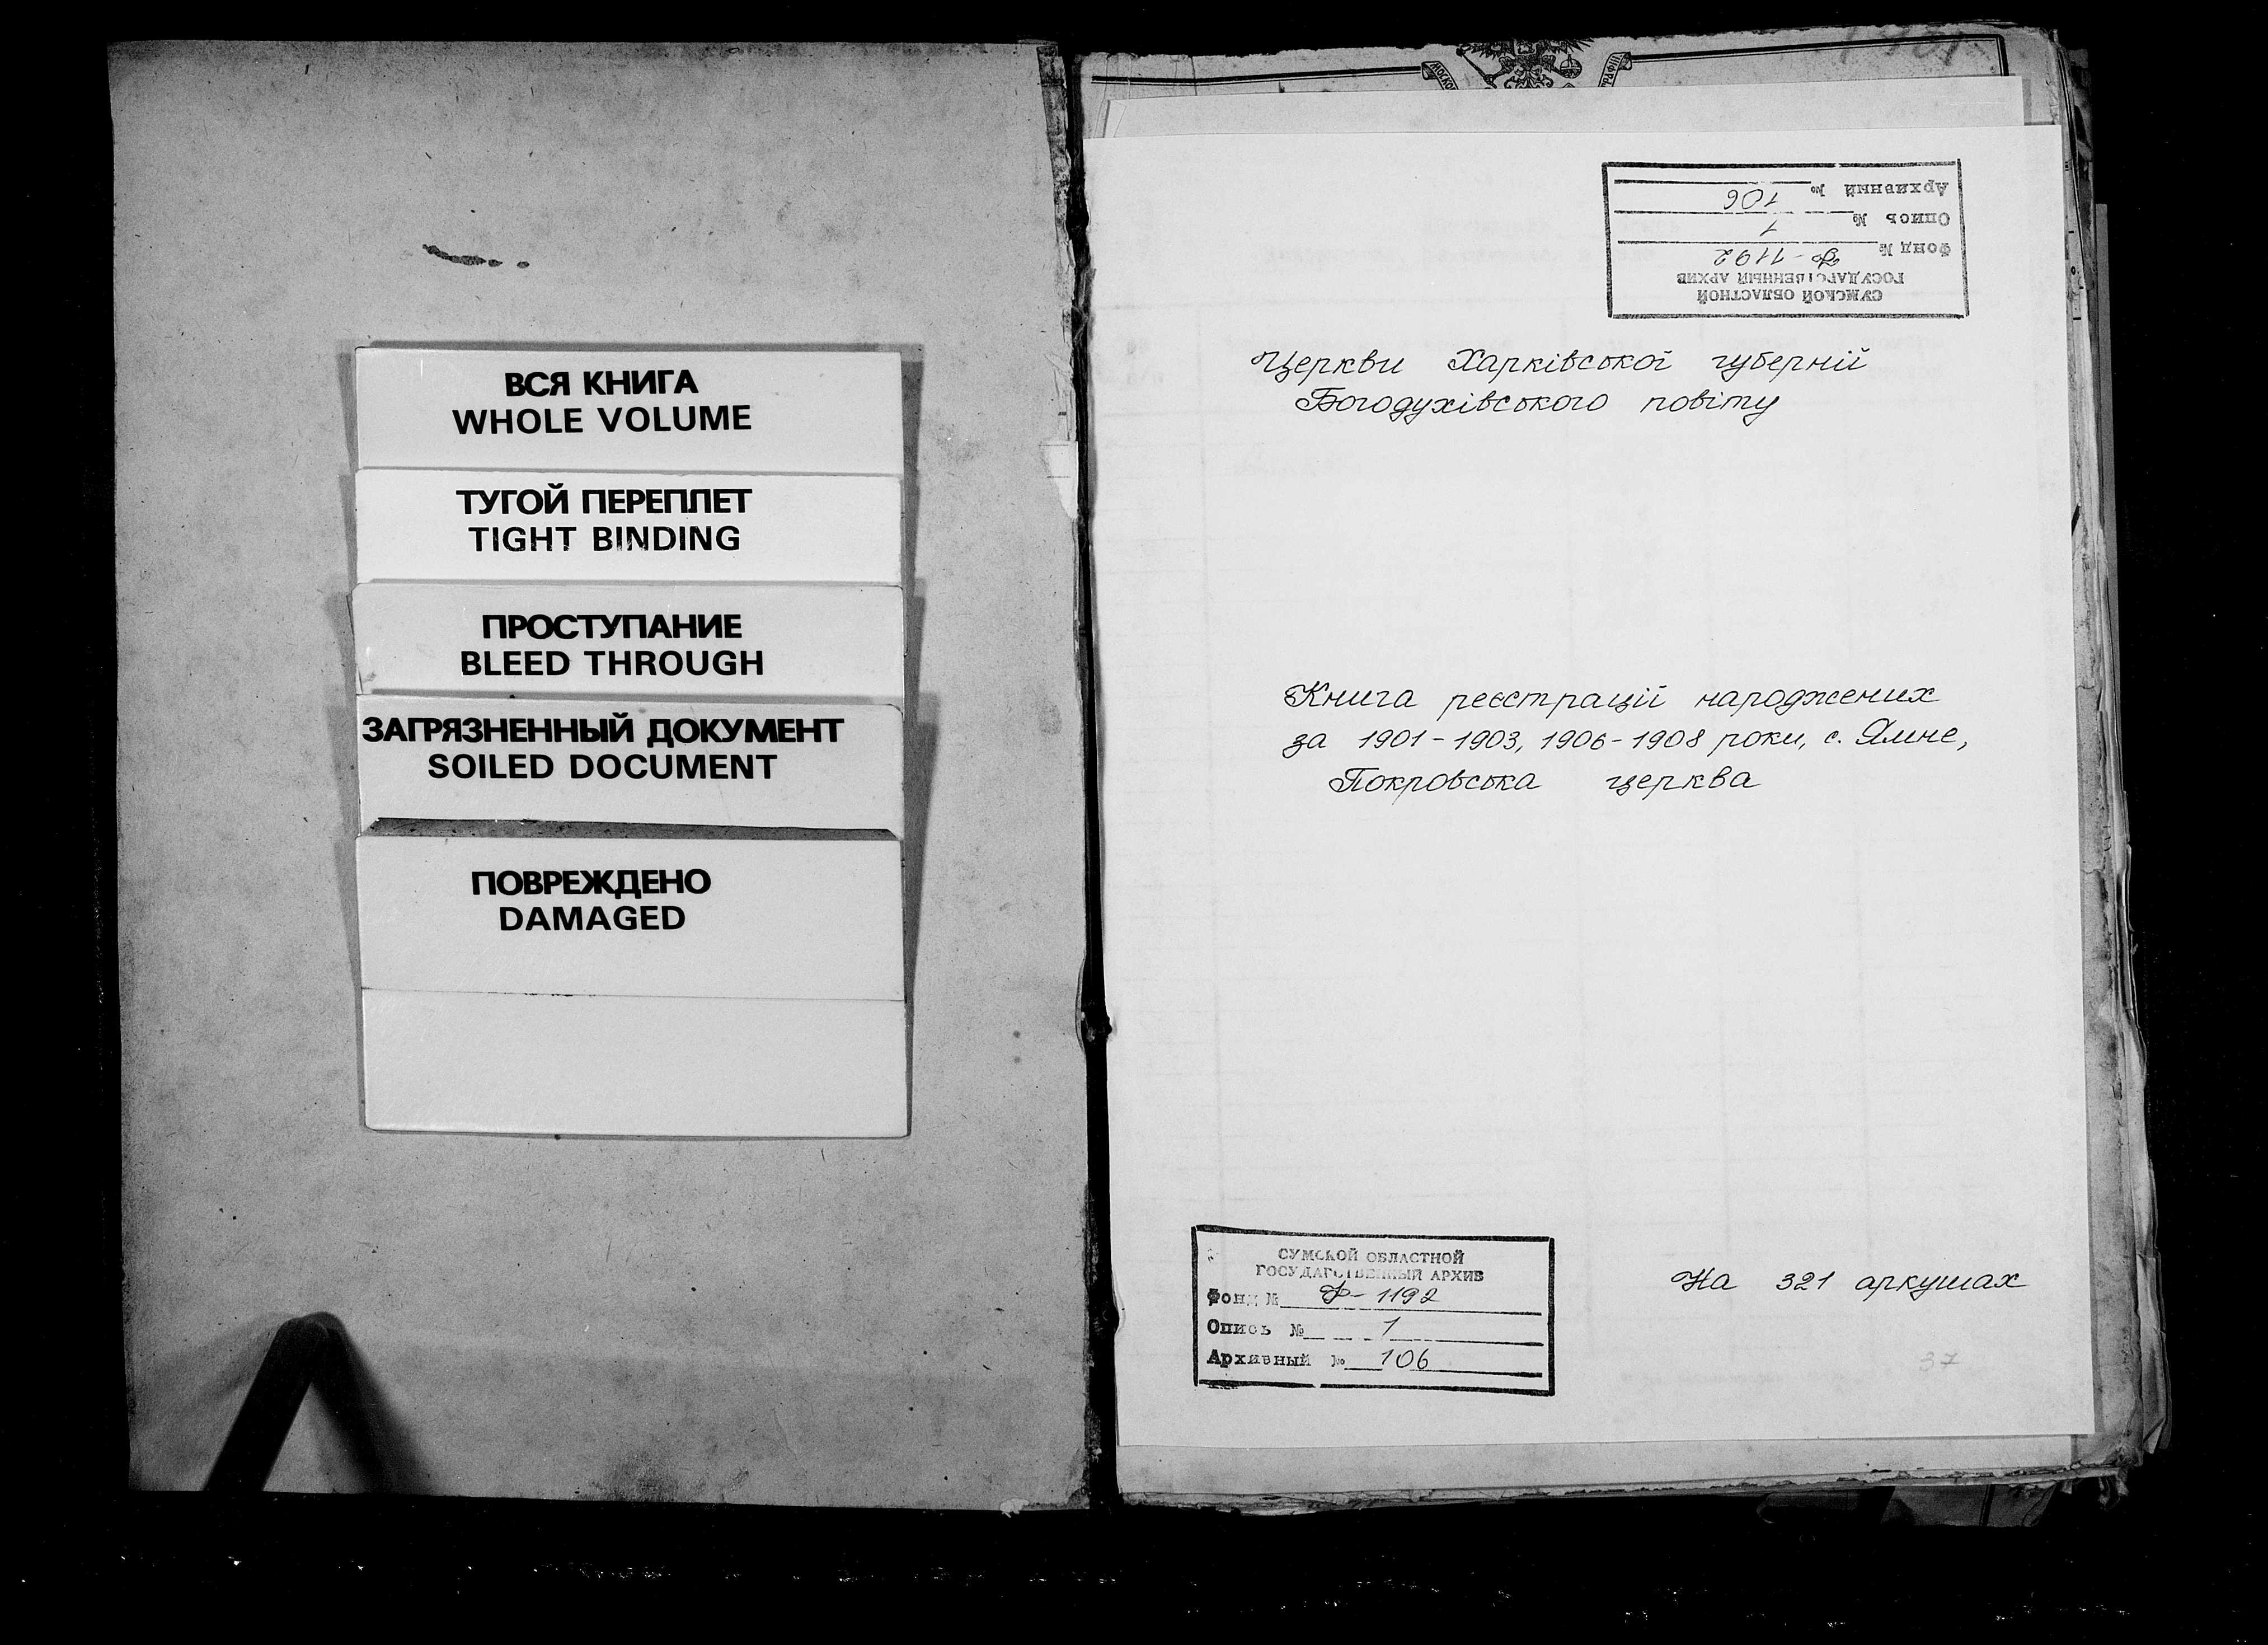 ВСЯ КНИГА
WHOLE VOLUME
ТУГОЙ ПЕРЕПЛЕТ
TIGHT BINDING
ПРОСТУПАНИЕ
BLEED THROUGH
ЗАГРЯЗНЕННЫЙ ДОКУМЕНТ
SOILED DOCUMENT
ПОВРЕЖДЕНО
DAMAGED
СУМСКОЙ ОБЛАСТНОЙ
ГОСУДАРСТВЕННЫЙ АРХИВ
Фонд № Ф-1192
Опись № 1
Архивный № 106
Церкви Харківської губернії
Богодухівського повіту
Книга реєстрації народжених
за 1901-1903, 1906-1908 роки, с. Ямне,
Покровська церква
СУМСКОЙ ОБЛАСТНОЙ
ГОСУДАРСТВЕННЫЙ АРХИВ
Фонд № Ф-1192
Опись № 1
Архивный № 106
На 321 аркушах
37